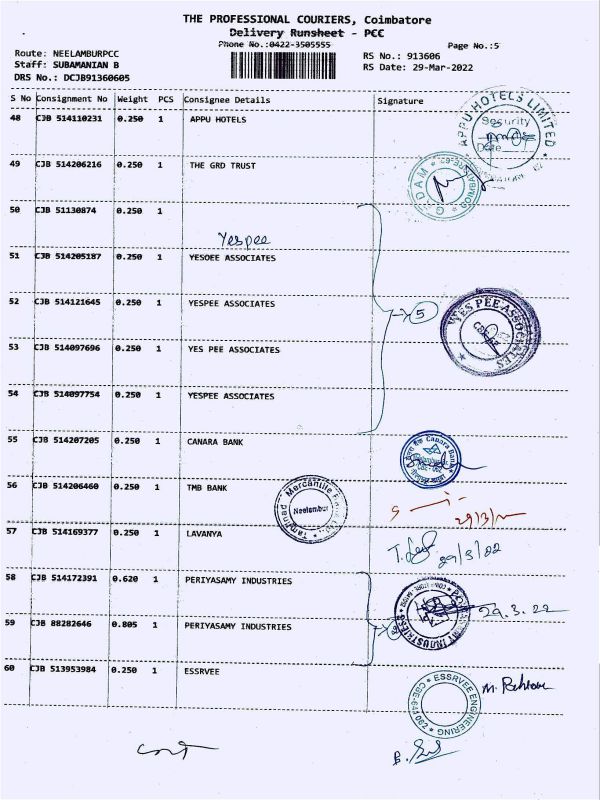 THE PROFESSIONAL COURIERS, Coimbatore
Delivery Runsheet - PCC
Phone No.:0422-3505555
Page No.:5
Route: NEELAMBURPCC
Staff: SUBAMANIAN B
DRS No.: DCJB91360605
RS No.: 913606
RS Date: 29-Mar-2022
S No Consignment No Weight PCS Consignee Details Signature
48 CJB 514110231 0.250 1 APPU HOTELS
APPU HOTELS LIMITED
Security
Date
49 CJB 514206216 0.250 1 THE GRD TRUST
50 CJB 51130874 0.250 1
Yespee
51 CJB 514205187 0.250 1 YESOEE ASSOCIATES
52 CJB 514121645 0.250 1 YESPEE ASSOCIATES
5
YES PEE ASSOCIATES
53 CJB 514097696 0.250 1 YES PEE ASSOCIATES
54 CJB 514097754 0.250 1 YESPEE ASSOCIATES
55 CJB 514207205 0.250 1 CANARA BANK
Canara Bank
56 CJB 514206460 0.250 1 TMB BANK
Mercantile
Neelambur
29/3/22
57 CJB 514169377 0.250 1 LAVANYA
29/3/22
58 CJB 514172391 0.620 1 PERIYASAMY INDUSTRIES
INDUSTRIES
29.3.22
59 CJB 88282646 0.805 1 PERIYASAMY INDUSTRIES
60 CJB 513953984 0.250 1 ESSRVEE
ESSRVEE ENGINEERING
CBE-641 062